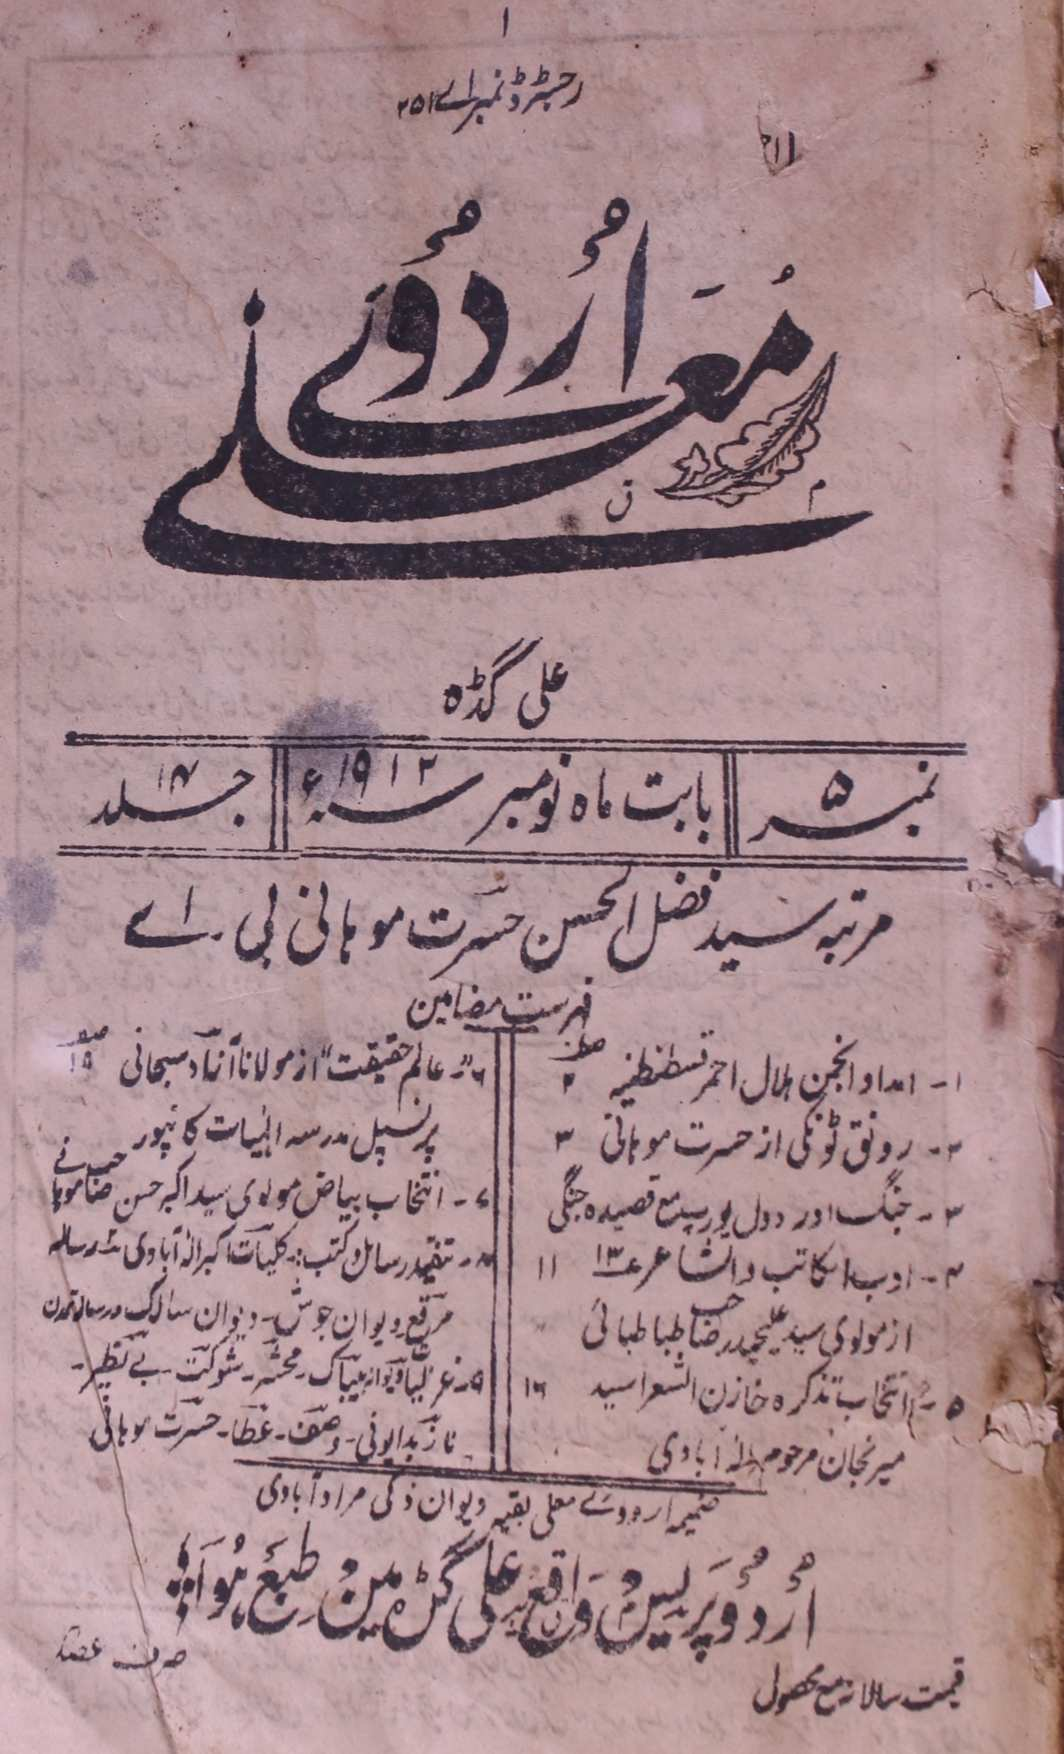 ۱
رجسٹرڈ نمبر اے ۲۵۱
اُردُوئے
مُعَلّٰے
علی گڈہ
نمبر ۵
بابت ماہ نومبر سنہ ۱۹۱۲ء
جلد ۱۴
مرتبہ سید فضل الحسن حسرت موہانی بی۔ اے
فہرست مضامین
صفحہ
۱- امداد انجمن ہلال احمر قسطنطنیہ ۲
۲- رونق ٹونکی از حسرت موہانی ۳
۳- جنگ اور دول یورپ مع قصیدہ جنگی
۴- ادب الکاتب والشاعر ع۱۳ ۱۱
از مولوی سید علیحیدر صاحب طباطبائی
۵- انتخاب تذکرہ خازن الشعرا سید ۱۶
میر نجان مرحوم الہ آبادی
صفحہ
۶- "عالم حقیقت" از مولانا آزاد سبحانی ۱۹
پرنسپل مدرسہ الٰہیات کانپور
۷- انتخاب بیاض مولوی سید اکبر حسن صاحب موہانی
۸- تنقید رسائل و کتب: کلیات اکبر الہ آبادی رسالہ
مرقع دیوان جوش۔ دیوان سالک و رسالہ تمدن
۹- غزلیات بیباک۔ محشر۔ شوکت۔ بے نظیر۔
ناز بدایونی۔ وصف۔ عطا۔ حسرت موہانی
ضمیمہ اردوئے معلی بقیہ دیوان ذکی مرادآبادی
اُردُو پَریس واقع علی گڑہ مین طبع ہُوا
قیمت سالانہ مع محصول
صرف